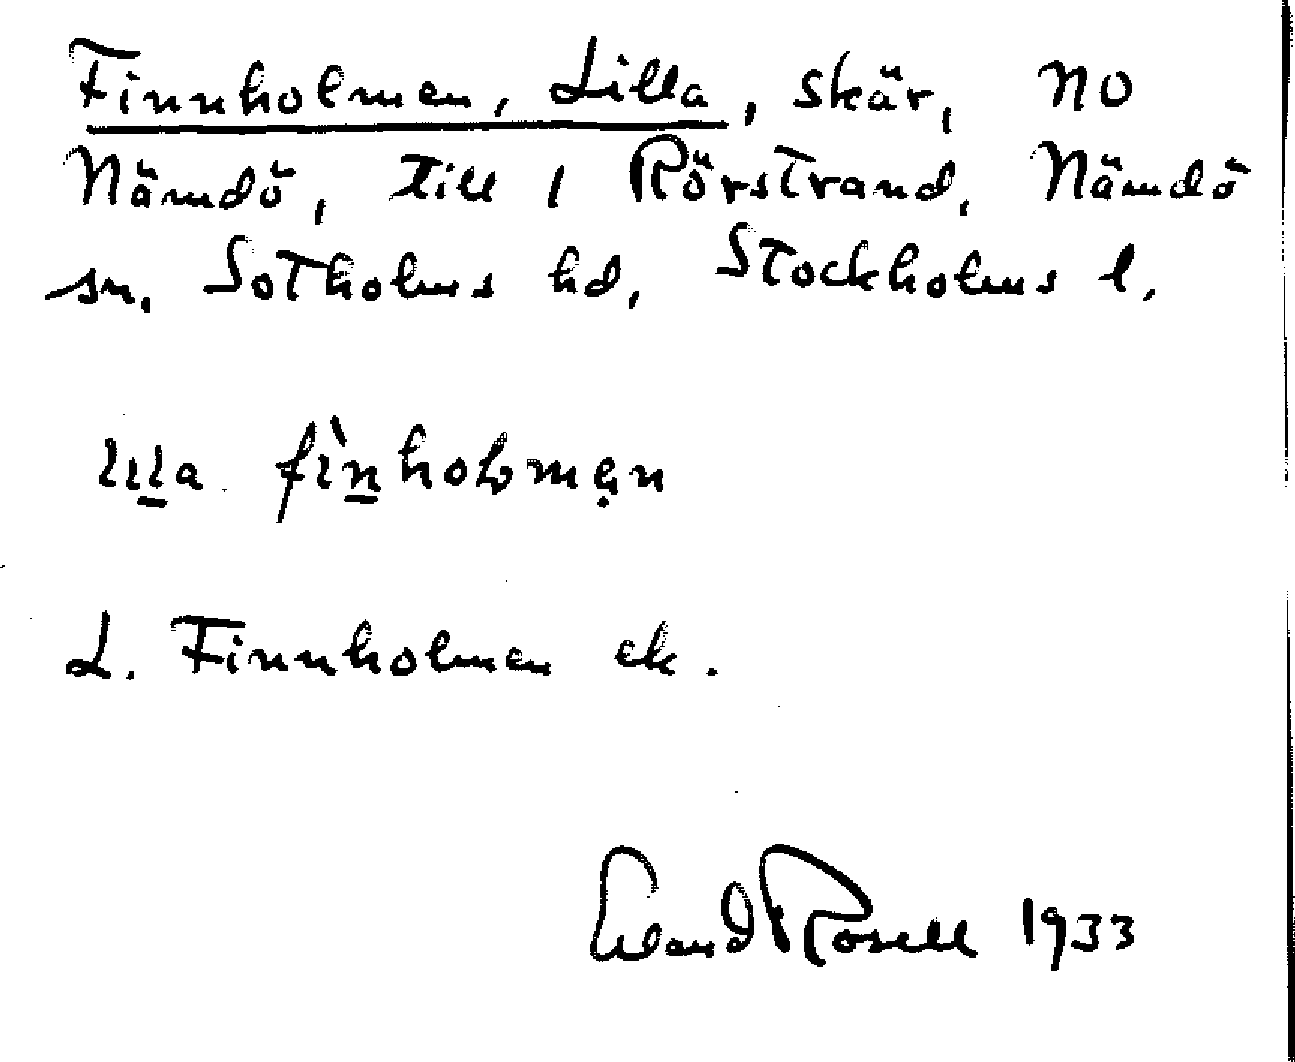 Finnholmen, Lilla, skär, NO
Nämdö, till 1 Rörstrand, Nämdö
sn, Sotholms hd, Stockholms l.
lıla fìnholmen
L. Finnholmen ek.
Erland Rosell 1933